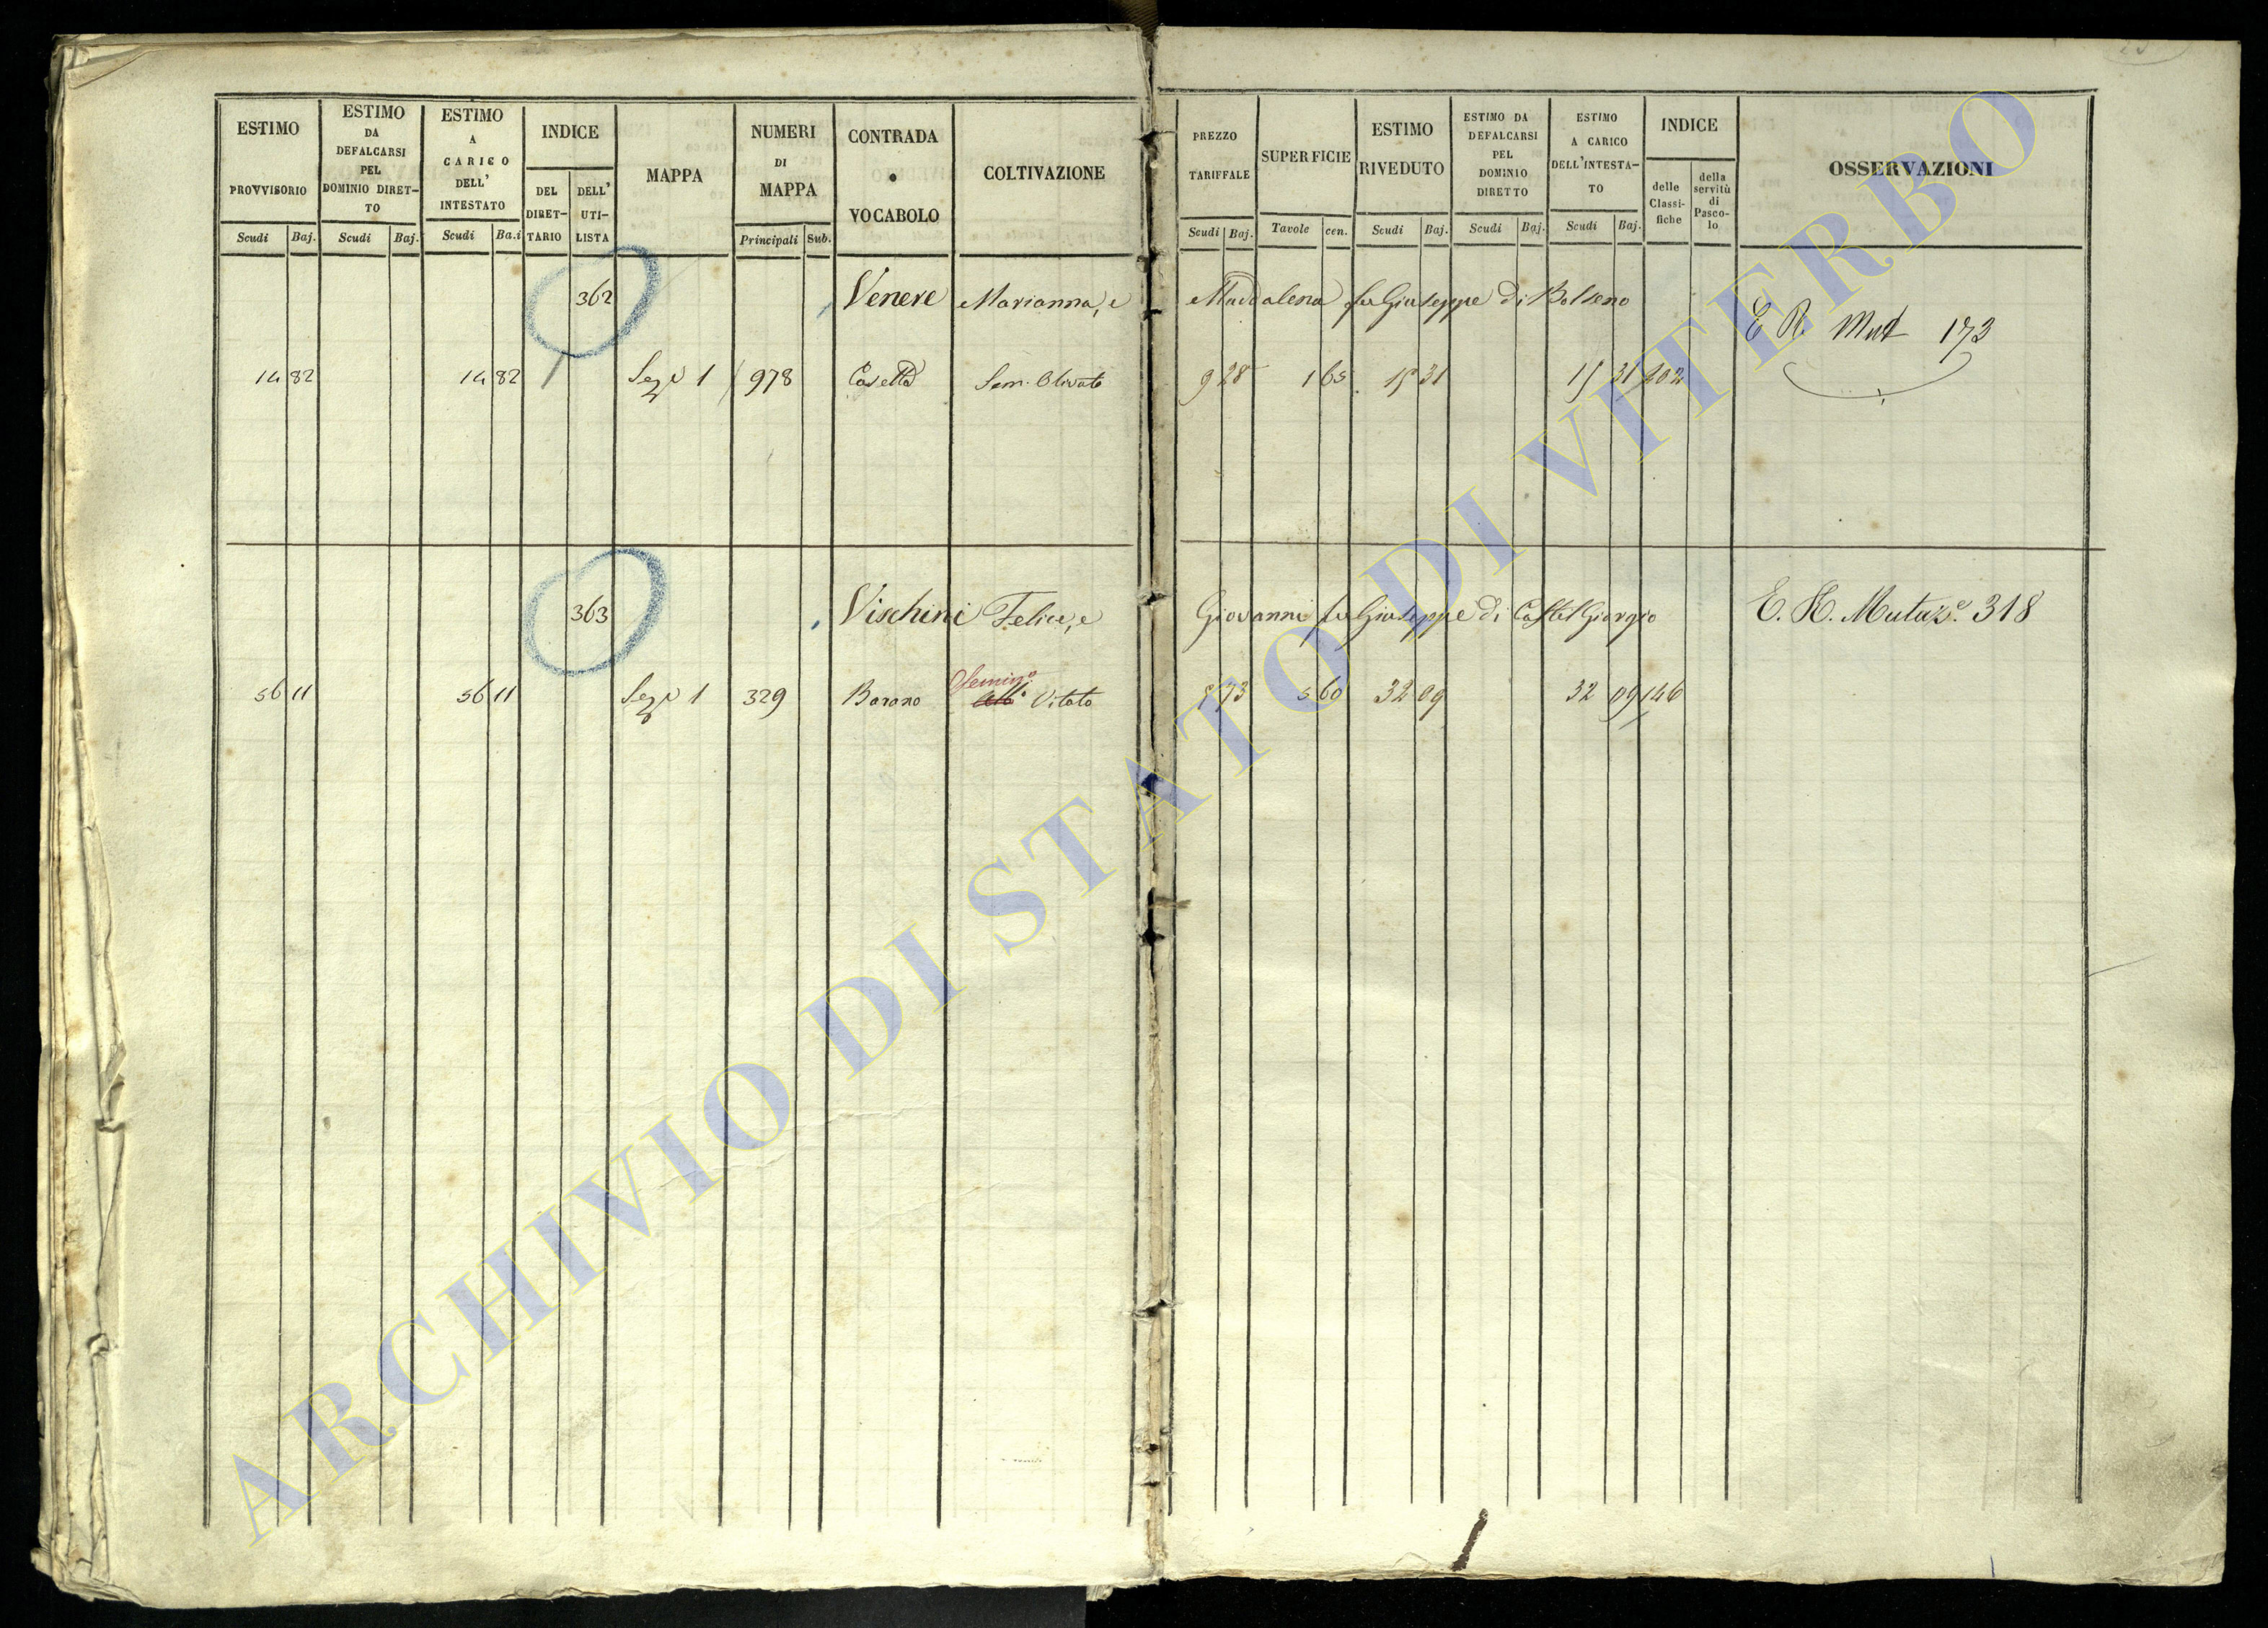 ESTIMO PROVVISORIO
Scudi Baj.
ESTIMO DA DEFALCARSI PEL DOMINIO DIRET-TO
Scudi Baj.
ESTIMO A CARICO DELL' INTESTATO
Scudi Ba.i
INDICE
DEL DIRET-TARIO
DELL' UTI-LISTA
MAPPA
NUMERI DI MAPPA
Principali Sub.
CONTRADA o VOCABOLO
COLTIVAZIONE
PREZZO TARIFFALE
Scudi Baj.
SUPERFICIE
Tavole cen.
ESTIMO RIVEDUTO
Scudi Baj.
ESTIMO DA DEFALCARSI PEL DOMINIO DIRETTO
Scudi Baj.
ESTIMO A CARICO DELL'INTESTA-TO
Scudi Baj.
INDICE
delle Classi-fiche
della servitù di Pasco-lo
OSSERVAZIONI
362 Venere Marianna, e Maddalena fu Giuseppe di Bolseno
E R. Mut 173
14 82 14 82 Sez.e 1 978 Casetta Sem. Olivato 9 28 1 65 15 31 15 31 202
363 Vischini Felice, e Giovanni fu Giuseppe di Castel Giorgio E. R. Mutaz.e 318
Semin.o
56 11 56 11 Sez.e 1 329 Barano Vitato 5 73 5 60 32 09 32 09 146
ARCHIVIO DI STATO DI VITERBO